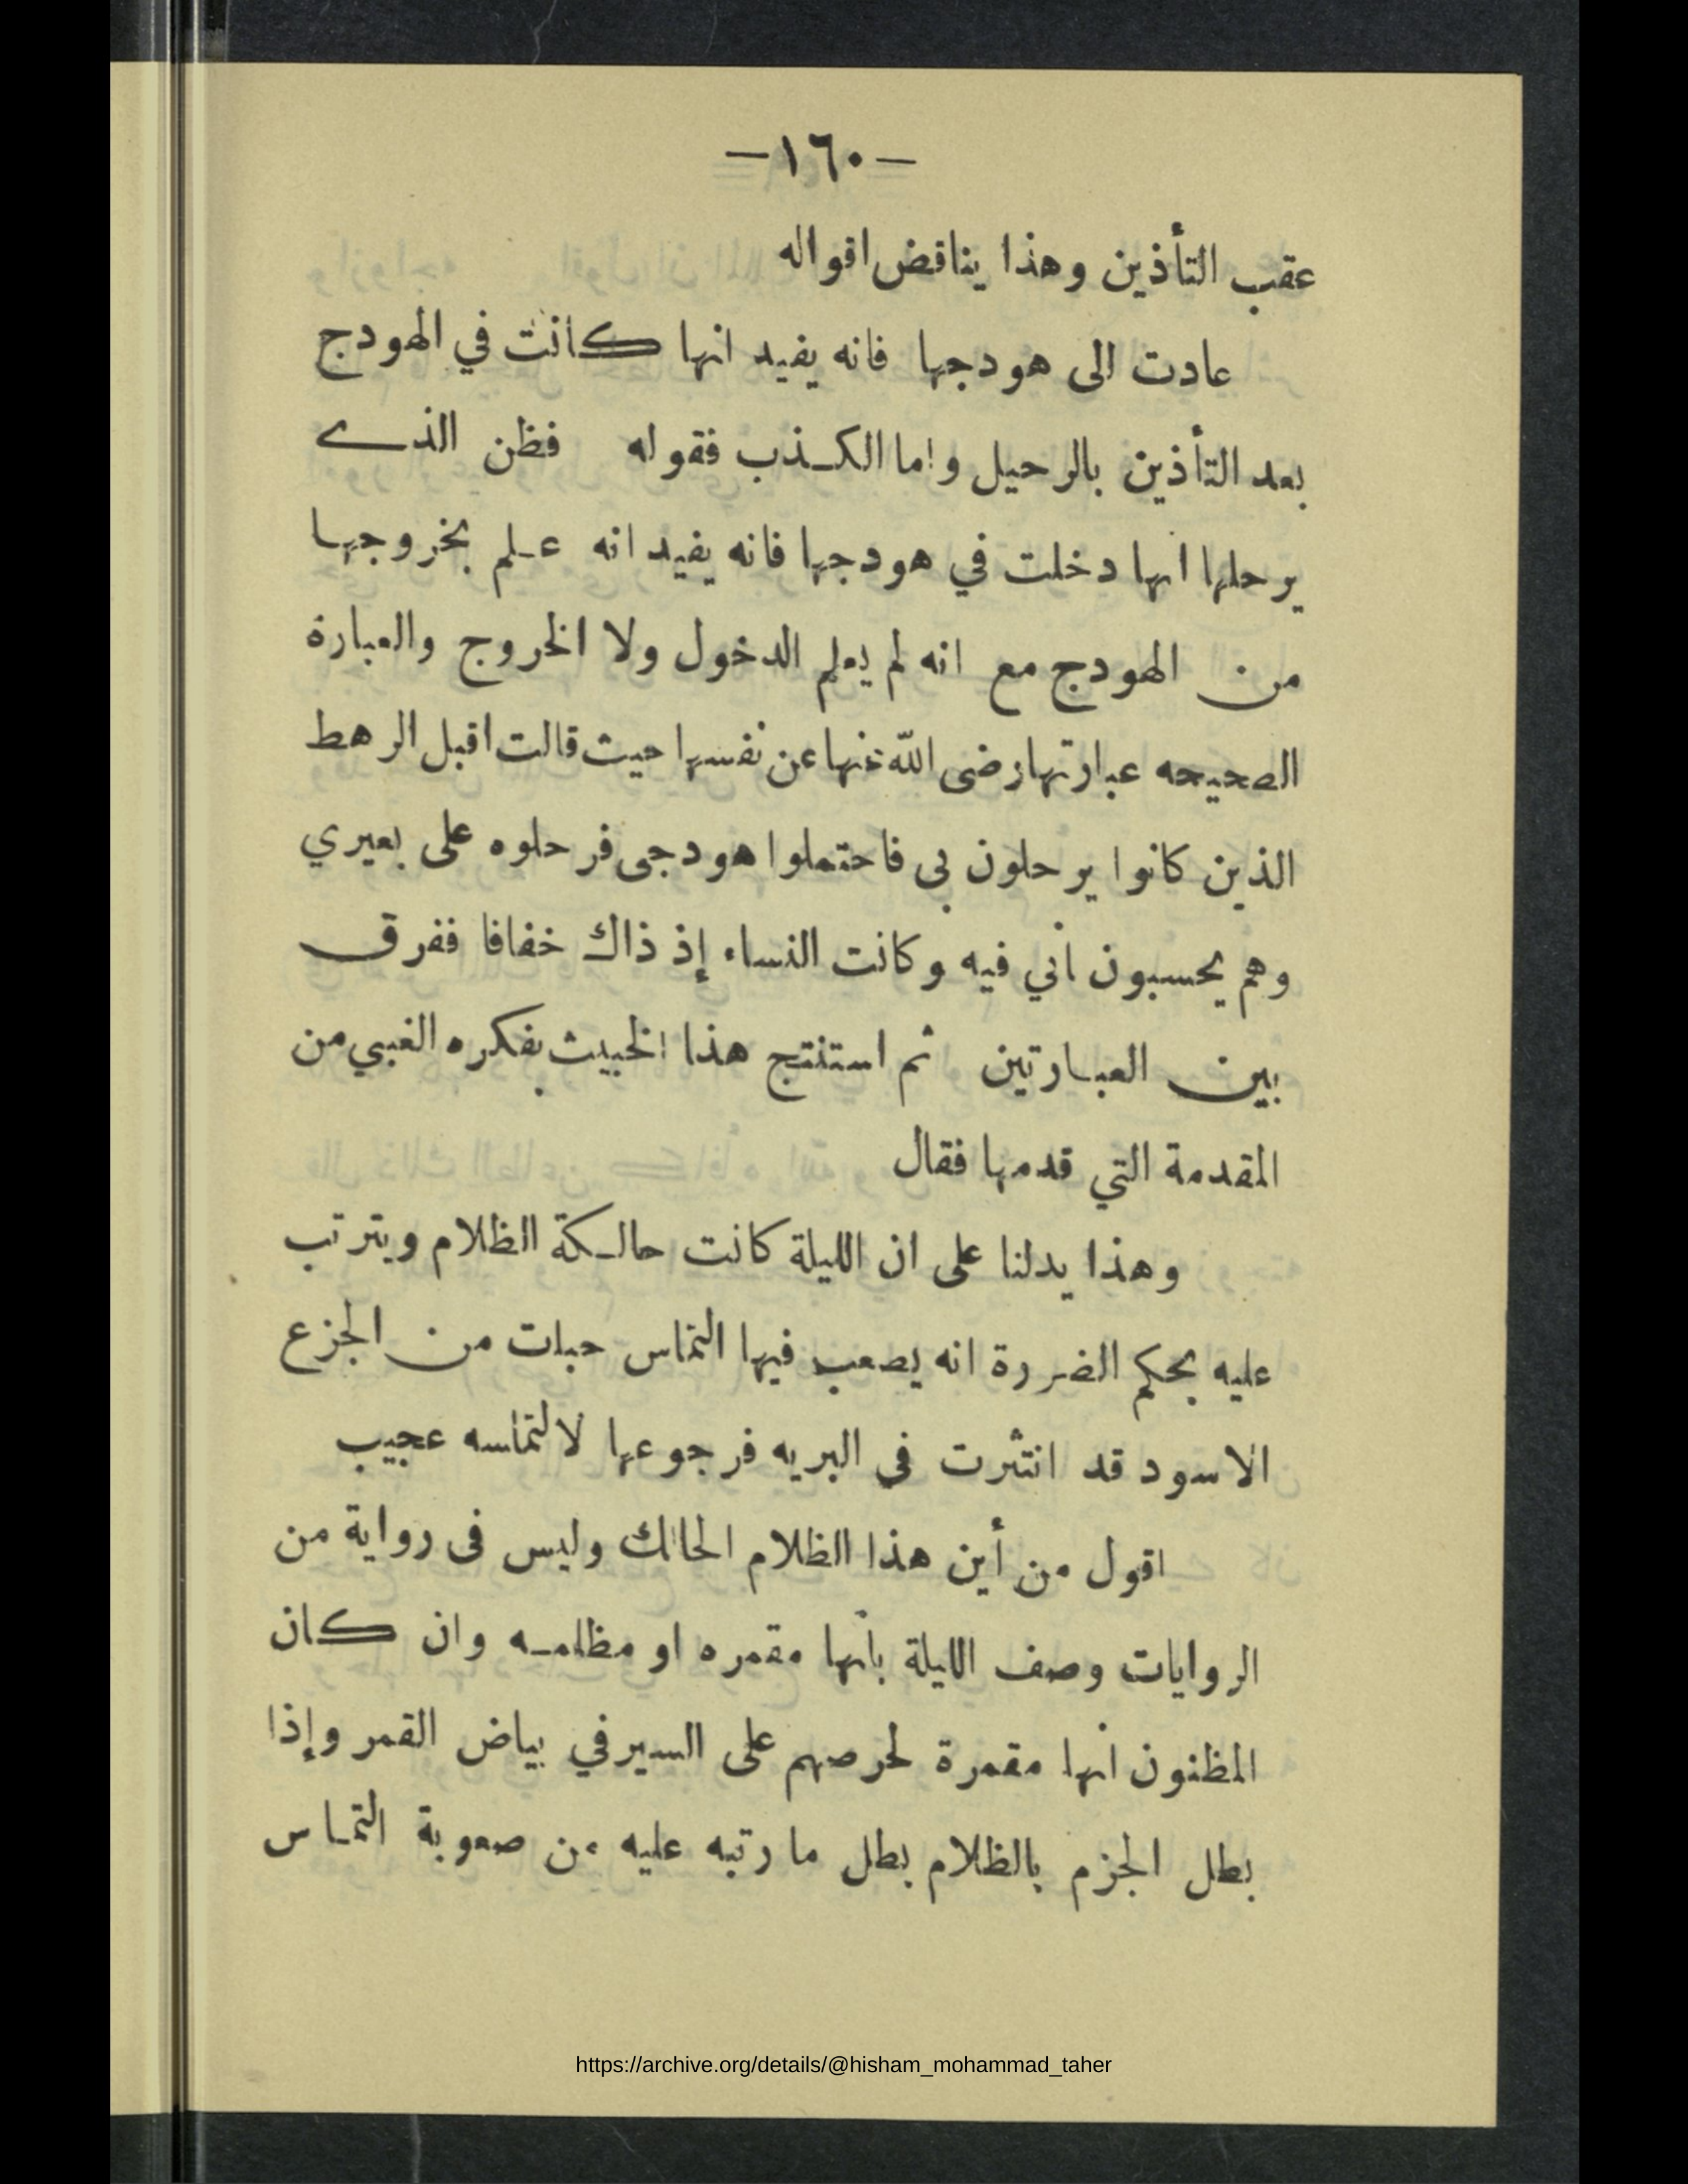 —١٦٠—
عقب التأذين وهذا يناقض اقواله
عادت الى هودجها فانه يفيد انها كانت في الهودج
بعد التأذين بالرحيل واما الكذب فقوله فظن الذي
يرحلها انها دخلت في هودجها فانه يفيد انه علم بخروجها
من الهودج مع انه لم يعلم الدخول ولا الخروج والعبارة
الصحيحه عبارتها رضى الله عنها عن نفسها حيث قالت اقبل الرهط
الذين كانوا يرحلون بى فاحتملوا هودجى فرحلوه على بعيري
وهم يحسبون أني فيه وكانت النساء إذ ذاك خفافا ففرق
بين العبارتين ثم استنتج هذا الخبيث بفكره الغبي من
المقدمة التي قدمها فقال
وهذا يدلنا على ان الليلة كانت حالكة الظلام ويترتب
عليه بحكم الضرورة انه يصعب فيها التماس حبات من الجزع
الاسود قد انتثرت فى البريه فرجوعها لالتماسه عجيب
اقول من أين هذا الظلام الحالك وليس فى رواية من
الروايات وصف الليلة بأنها مقمره او مظلمه وان كان
المظنون أنها مقمرة لحرصهم على السير في بياض القمر وإذا
بطل الجزم بالظلام بطل ما رتبه عليه من صعوبة التماس
https://archive.org/details/@hisham_mohammad_taher